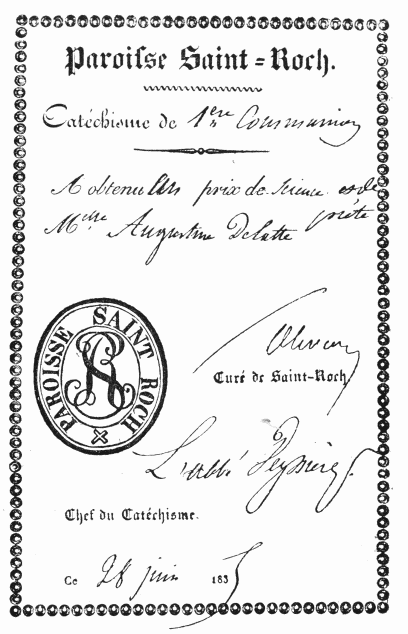 Paroisse Saint=Roch.
Catéchisme de 1ere Communion
A obtenu Un prix de Science et de
piété
Mlle Augustine Delatte
PAROISSE SAINT ROCH
SR
Olivier
Curé de Saint-Roch
L'abbé
Chef du Catéchisme.
Ce 28 juin 1835